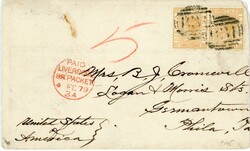 5
PAID
LIVERPOOL
BR PACKET
FE 79
3A
Mrs. B. J. Cromwell
Logan & Morris Sts.
Germantown
Phila.
United States
of
America